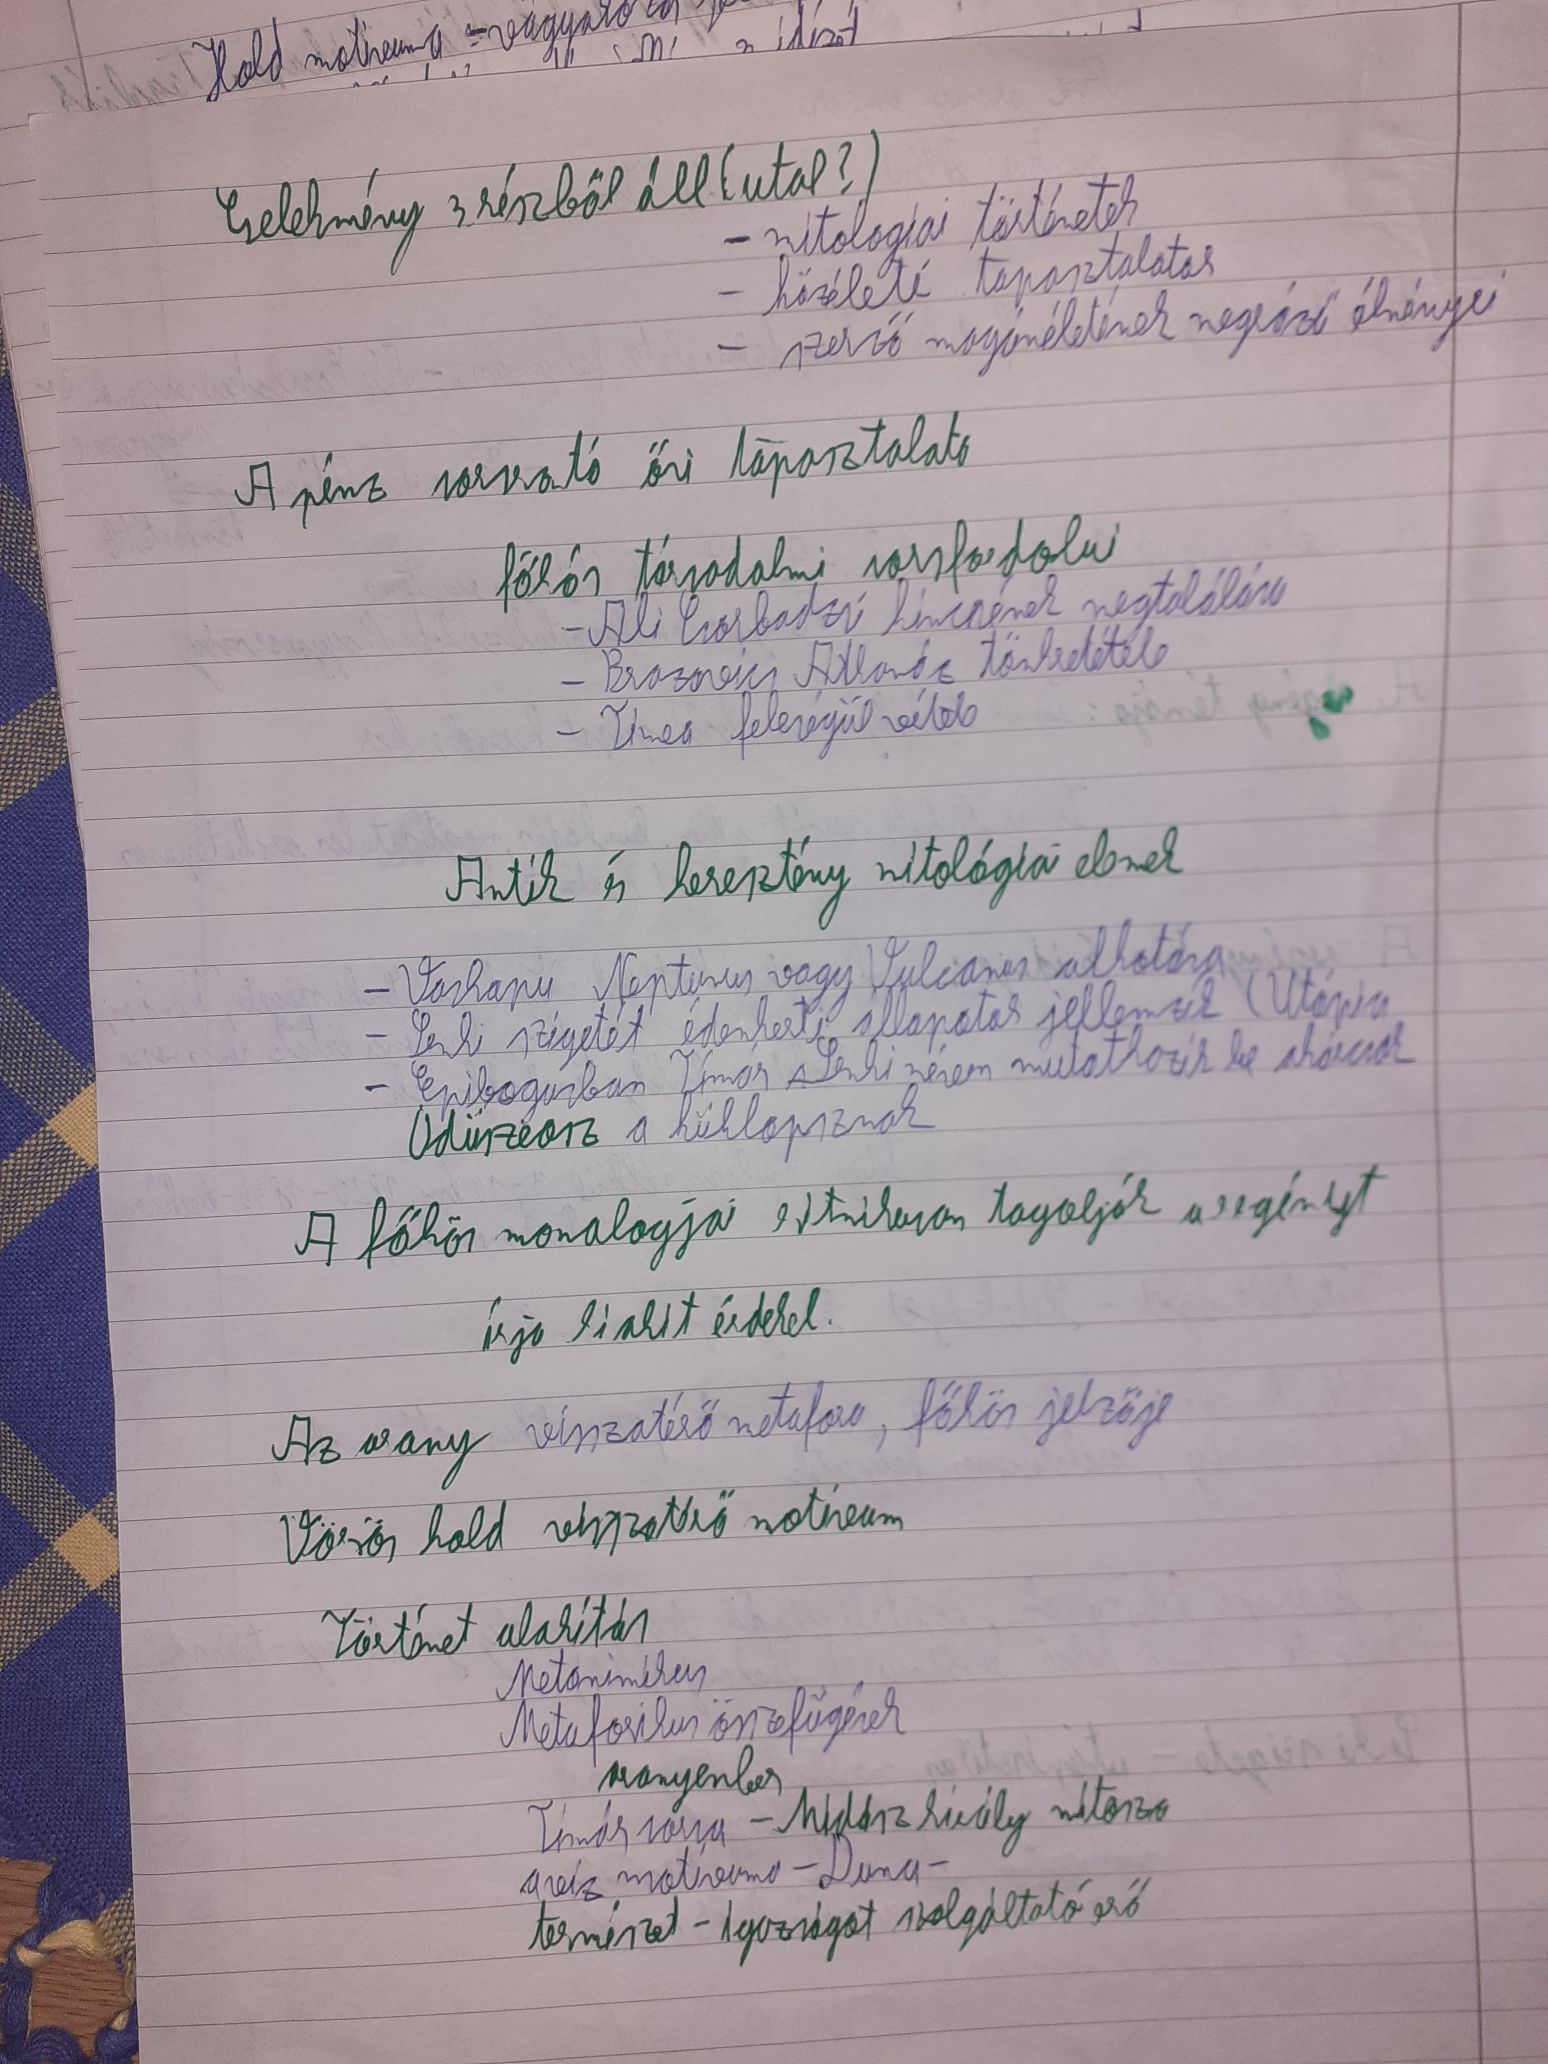 Hold motívuma = vágyaró
Cselekmény 3 részből áll (utal?)
- mitológiai történetek
- közéleti tapasztalatas
- szerző magánéletének megrázó élményei
A pénz sorsrontó ősi tapasztalata
főhős társadalmi sorsfordolui
- Ali Csorbadzsi kincsének megtalálása
- Brazovics Athanáz tönkretétele
- Tímea feleségül vétele
Antik és keresztény mitológiai elemek
- Vaskapu Neptunus vagy Vulcanus alkotása
- Senki szigetét édenkerti állapotas jellemzik (Utópia
- Epilogusban Tímár Senki néven mutatkozik be akárcsak
Odüszeosz a küklopsznak
A főhős monologjai ritmikusan tagolják a regényt
írja li akit érdekel.
Az arany visszatérő metafora, főhős jelzője
Vörös hold visszatérő motívum
Történet alakítás
Metonimikus
Metaforikus összefügések
aranyember
Tímár sorsa - Midász király mítosza
a víz motívuma - Duna -
természet - igazságot szolgáltató erő